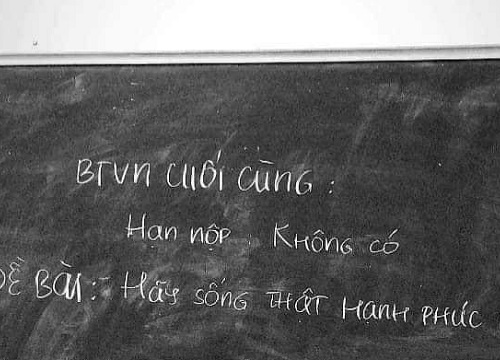 BTVN CUỐI CÙNG:
HẠN NỘP: KHÔNG CÓ
ĐỀ BÀI: HÃY SỐNG THẬT HẠNH PHÚC